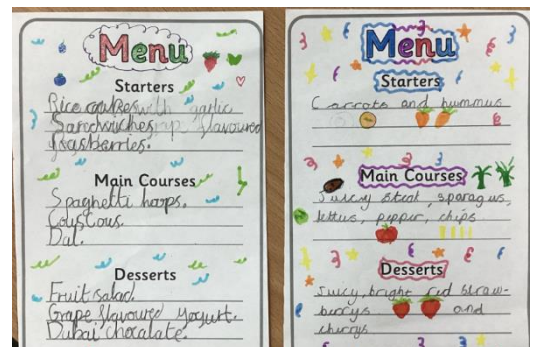 Menu
Starters
Rice cakes with garlic
Sandwiches flavoured
Rasberries.
Main Courses
Spaghetti hoops.
CousCous.
Dal.
Desserts
Fruit salad.
Grape flavoured yogurt.
Dubai chocalate.
Menu
Starters
Carrots and hummus
Main Courses
Juicy steak, sparagus,
lettus, pepper, chips
Desserts
Juicy, bright red straw-
berrys and
cherrys